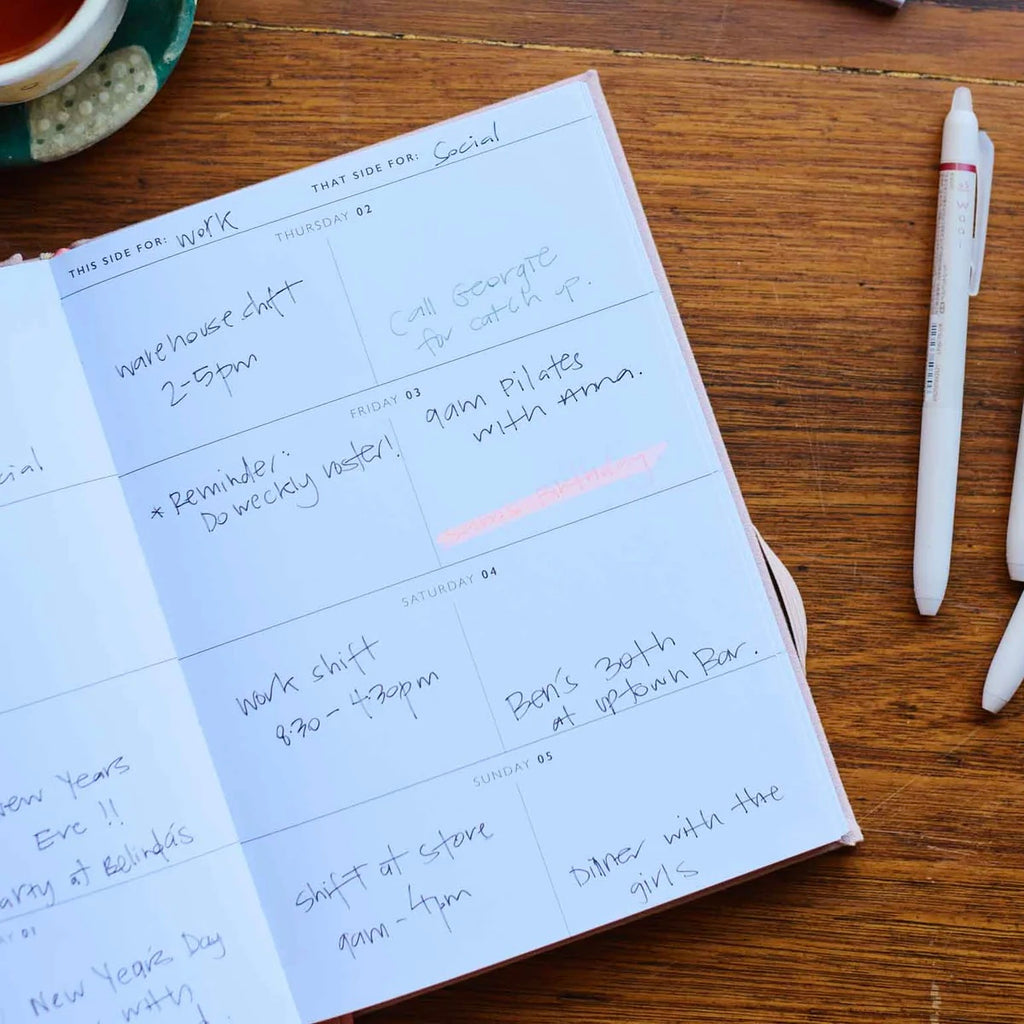 cial
ew Years
Eve !!
arty at Belinda's
01
New Year's Day
with
THIS SIDE FOR: work
THAT SIDE FOR: Social
THURSDAY 02
warehouse shift
2-5pm
Call Georgie
for catch up.
FRIDAY 03
* Reminder:
Do weekly roster!
9am Pilates
with Anna.
SATURDAY 04
work shift
8:30 - 4:30pm
Ben's 30th
at uptown Bar.
SUNDAY 05
shift at store
9am - 4pm
Dinner with the
girls